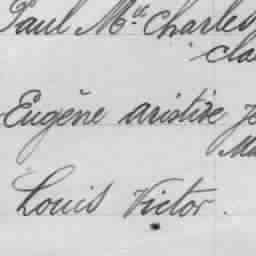 Paul Me Charles
cla
Eugène aristide Je
Ma
Louis Victor.